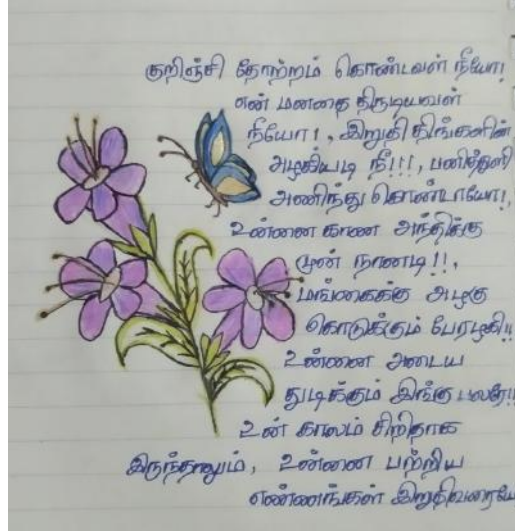 குறிஞ்சி தோற்றம் கொண்டவள் நீயோ!
என் மனதை திருடியவள்
நீயோ!, இறுதி திங்களின்
அழகியடி நீ!!!, பனித்துளி
அணிந்து கொண்டாயோ!,
உன்னை காண அந்திக்கு
முன் நானடி!!,
மங்கைக்கு அழகு
கொடுக்கும் பேரழகி!!
உன்னை அடைய
துடிக்கும் இங்கு பலரே!!
உன் காலம் சிறிதாக
இருந்தாலும், உன்னை பற்றிய
எண்ணங்கள் இறுதிவரையே